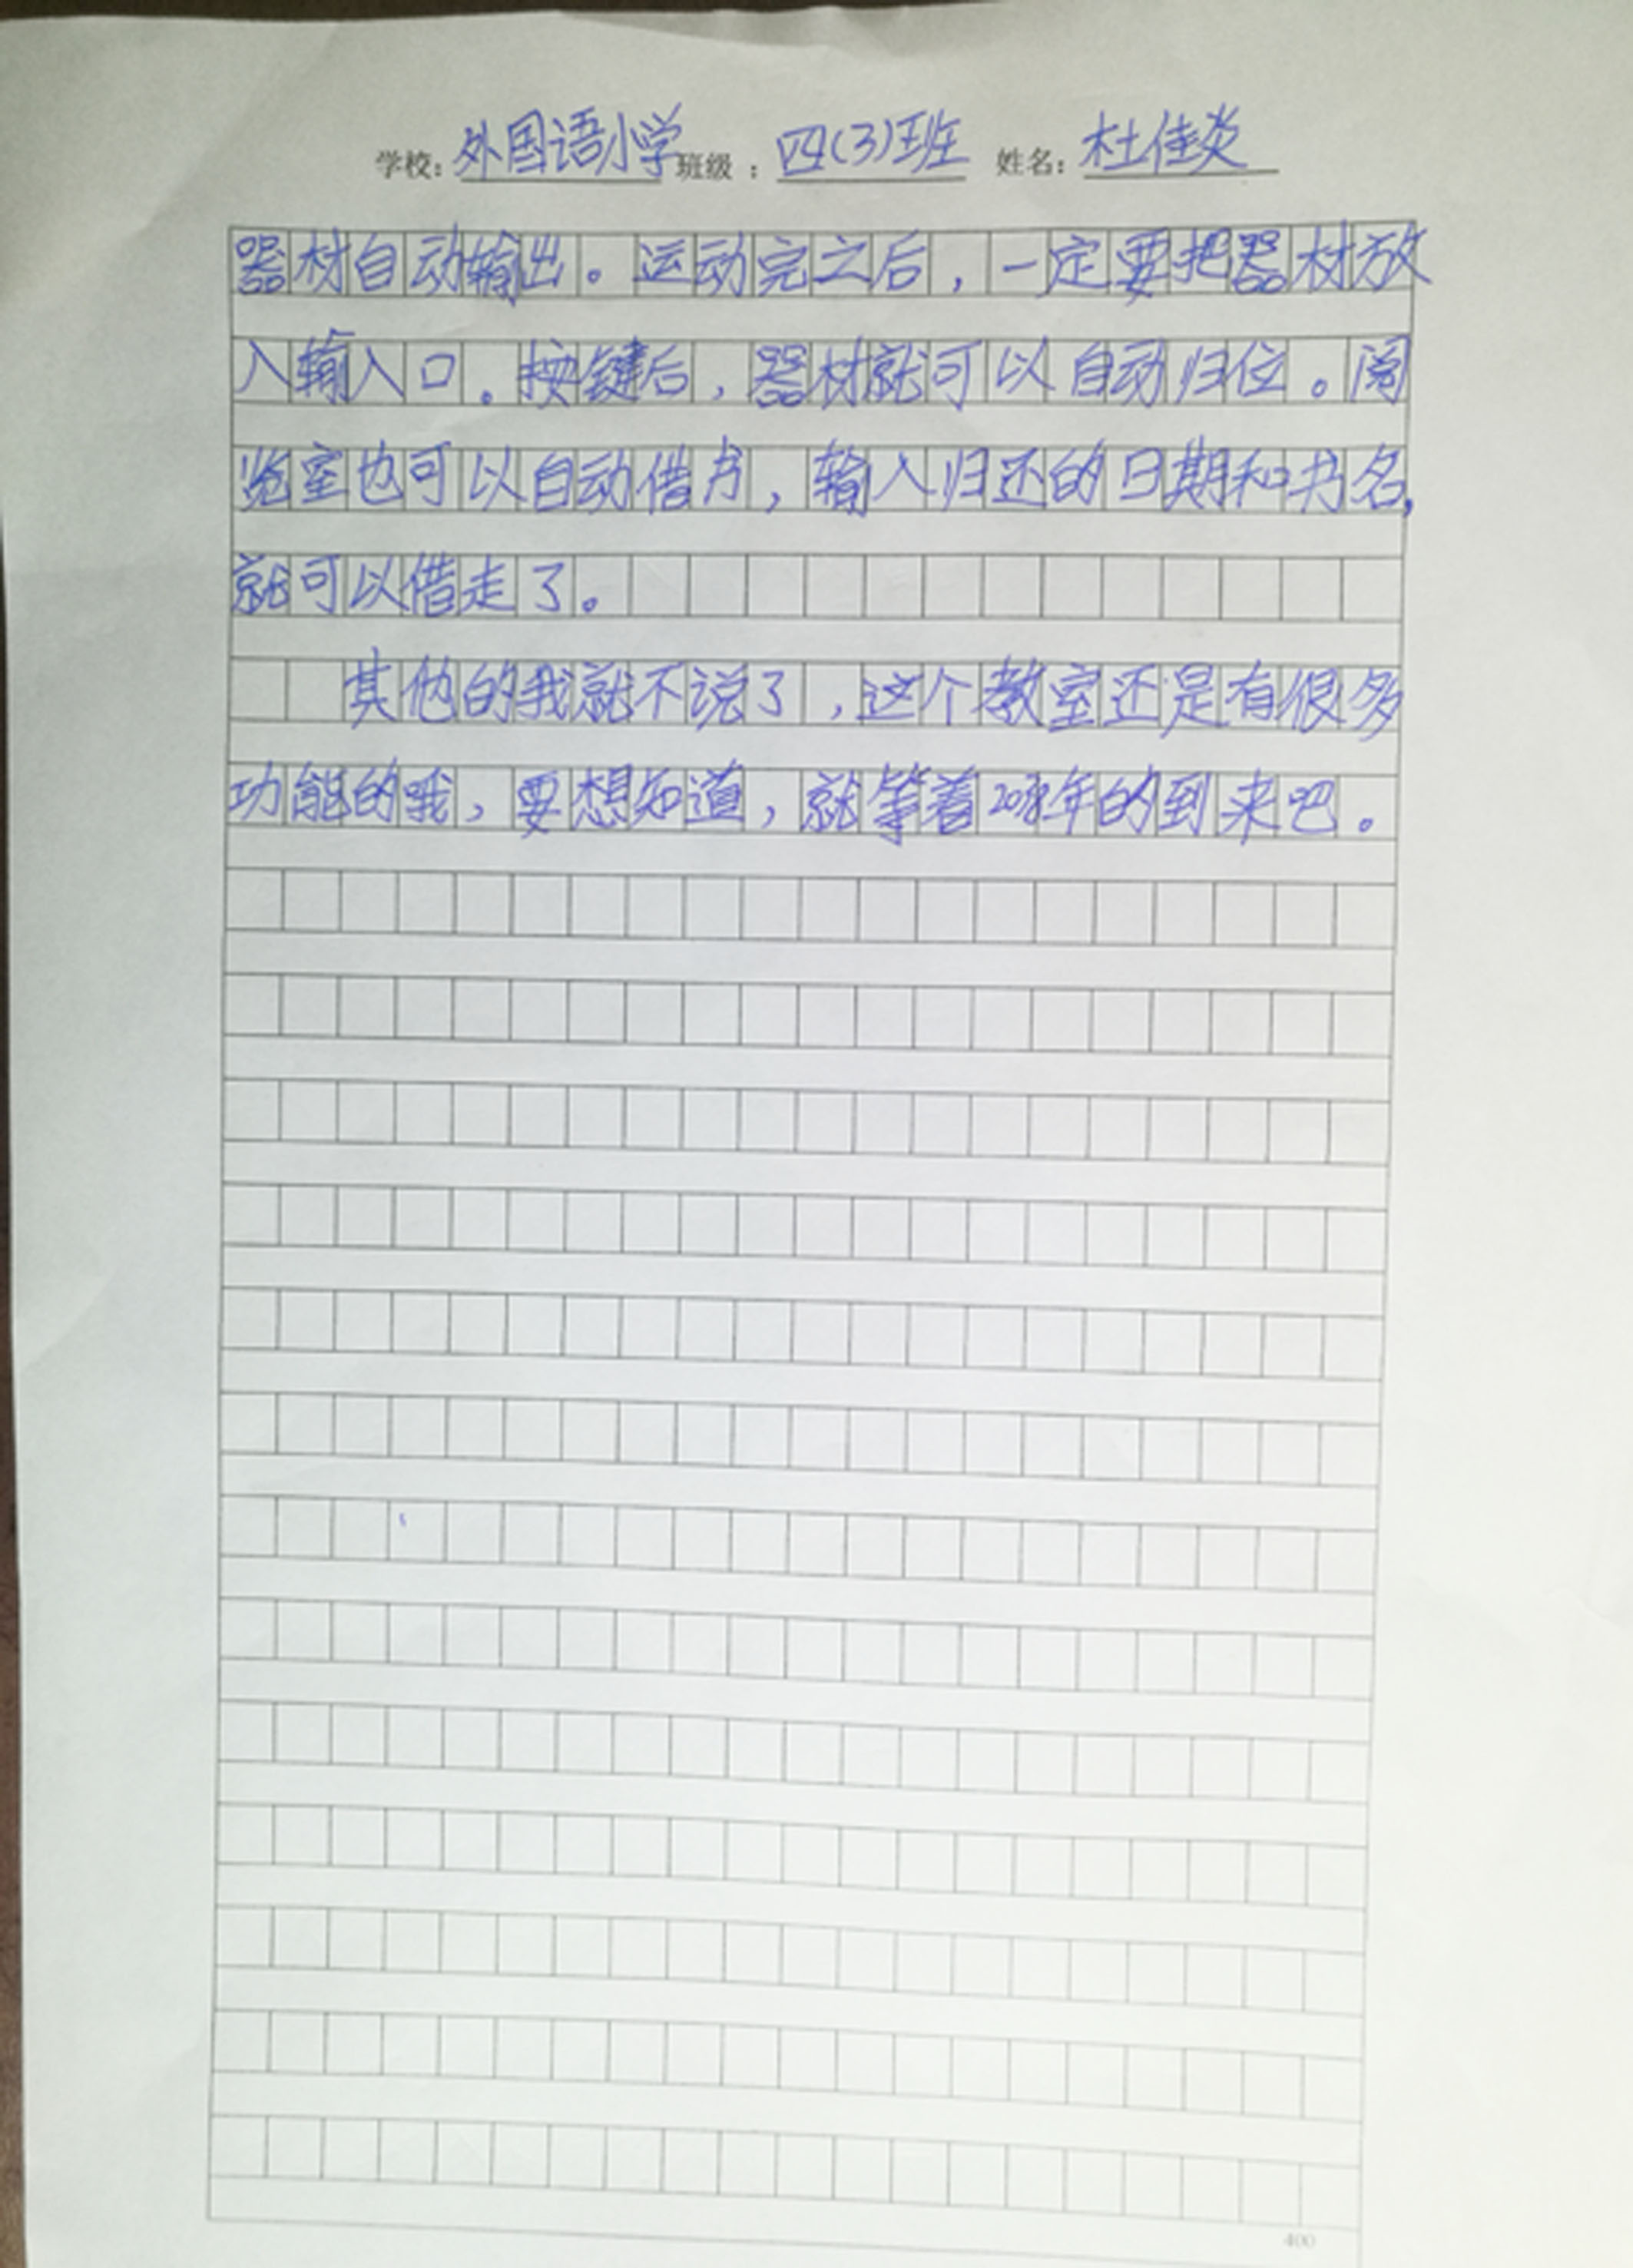 学校：外国语小学 班级：四(3)班 姓名：杜佳炎
器材自动输出。运动完之后，一定要把器材放
入输入口。按键后，器材就可以自动归位。阅
览室也可以自动借书，输入归还的日期和书名，
就可以借走了。
其他的我就不说了，这个教室还是有很多
功能的哦，要想知道，就等着2038年的到来吧。
400